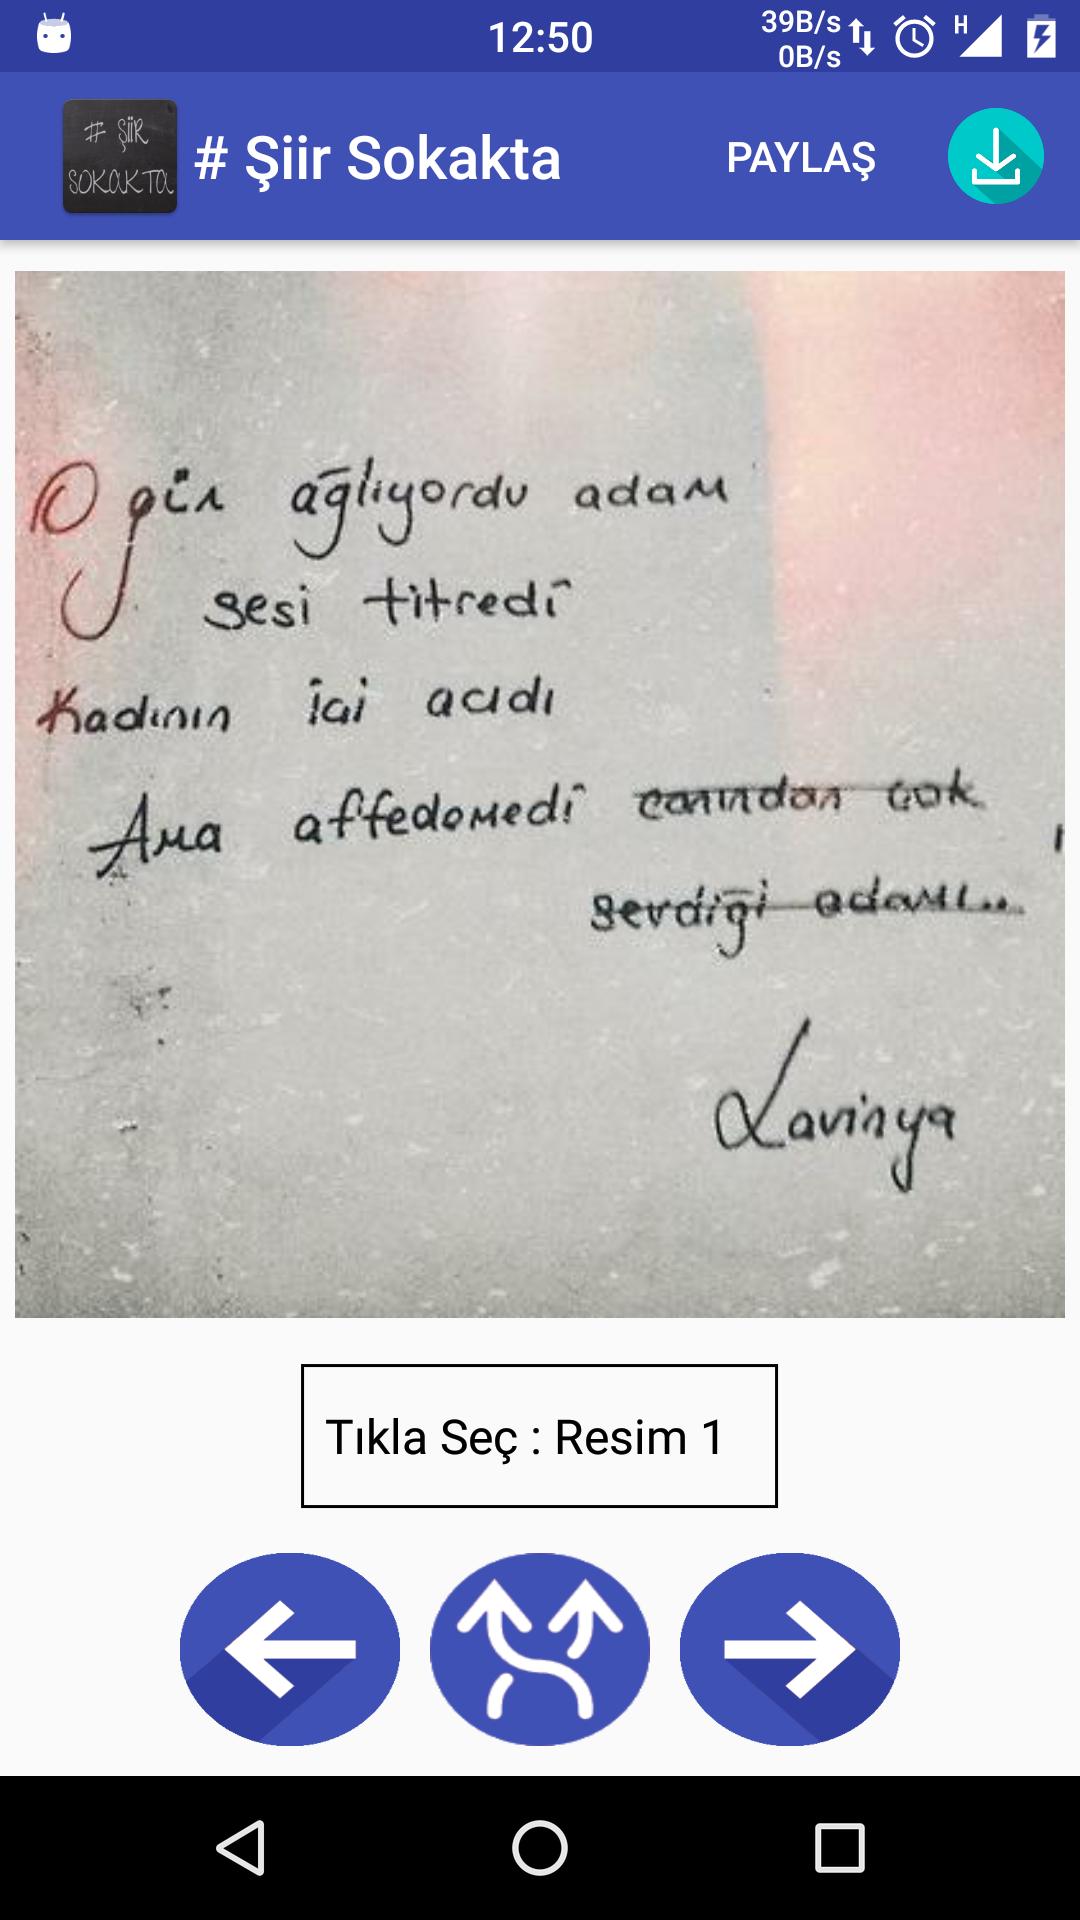 12:50
39B/s
0B/s
H
# ŞİİR
SOKAKTA
# Şiir Sokakta
PAYLAŞ
O gün ağlıyordu adam
sesi titredi
Kadının içi acıdı
Ama affedemedi canından çok
sevdiği adamı...
Lavinya
Tıkla Seç : Resim 1